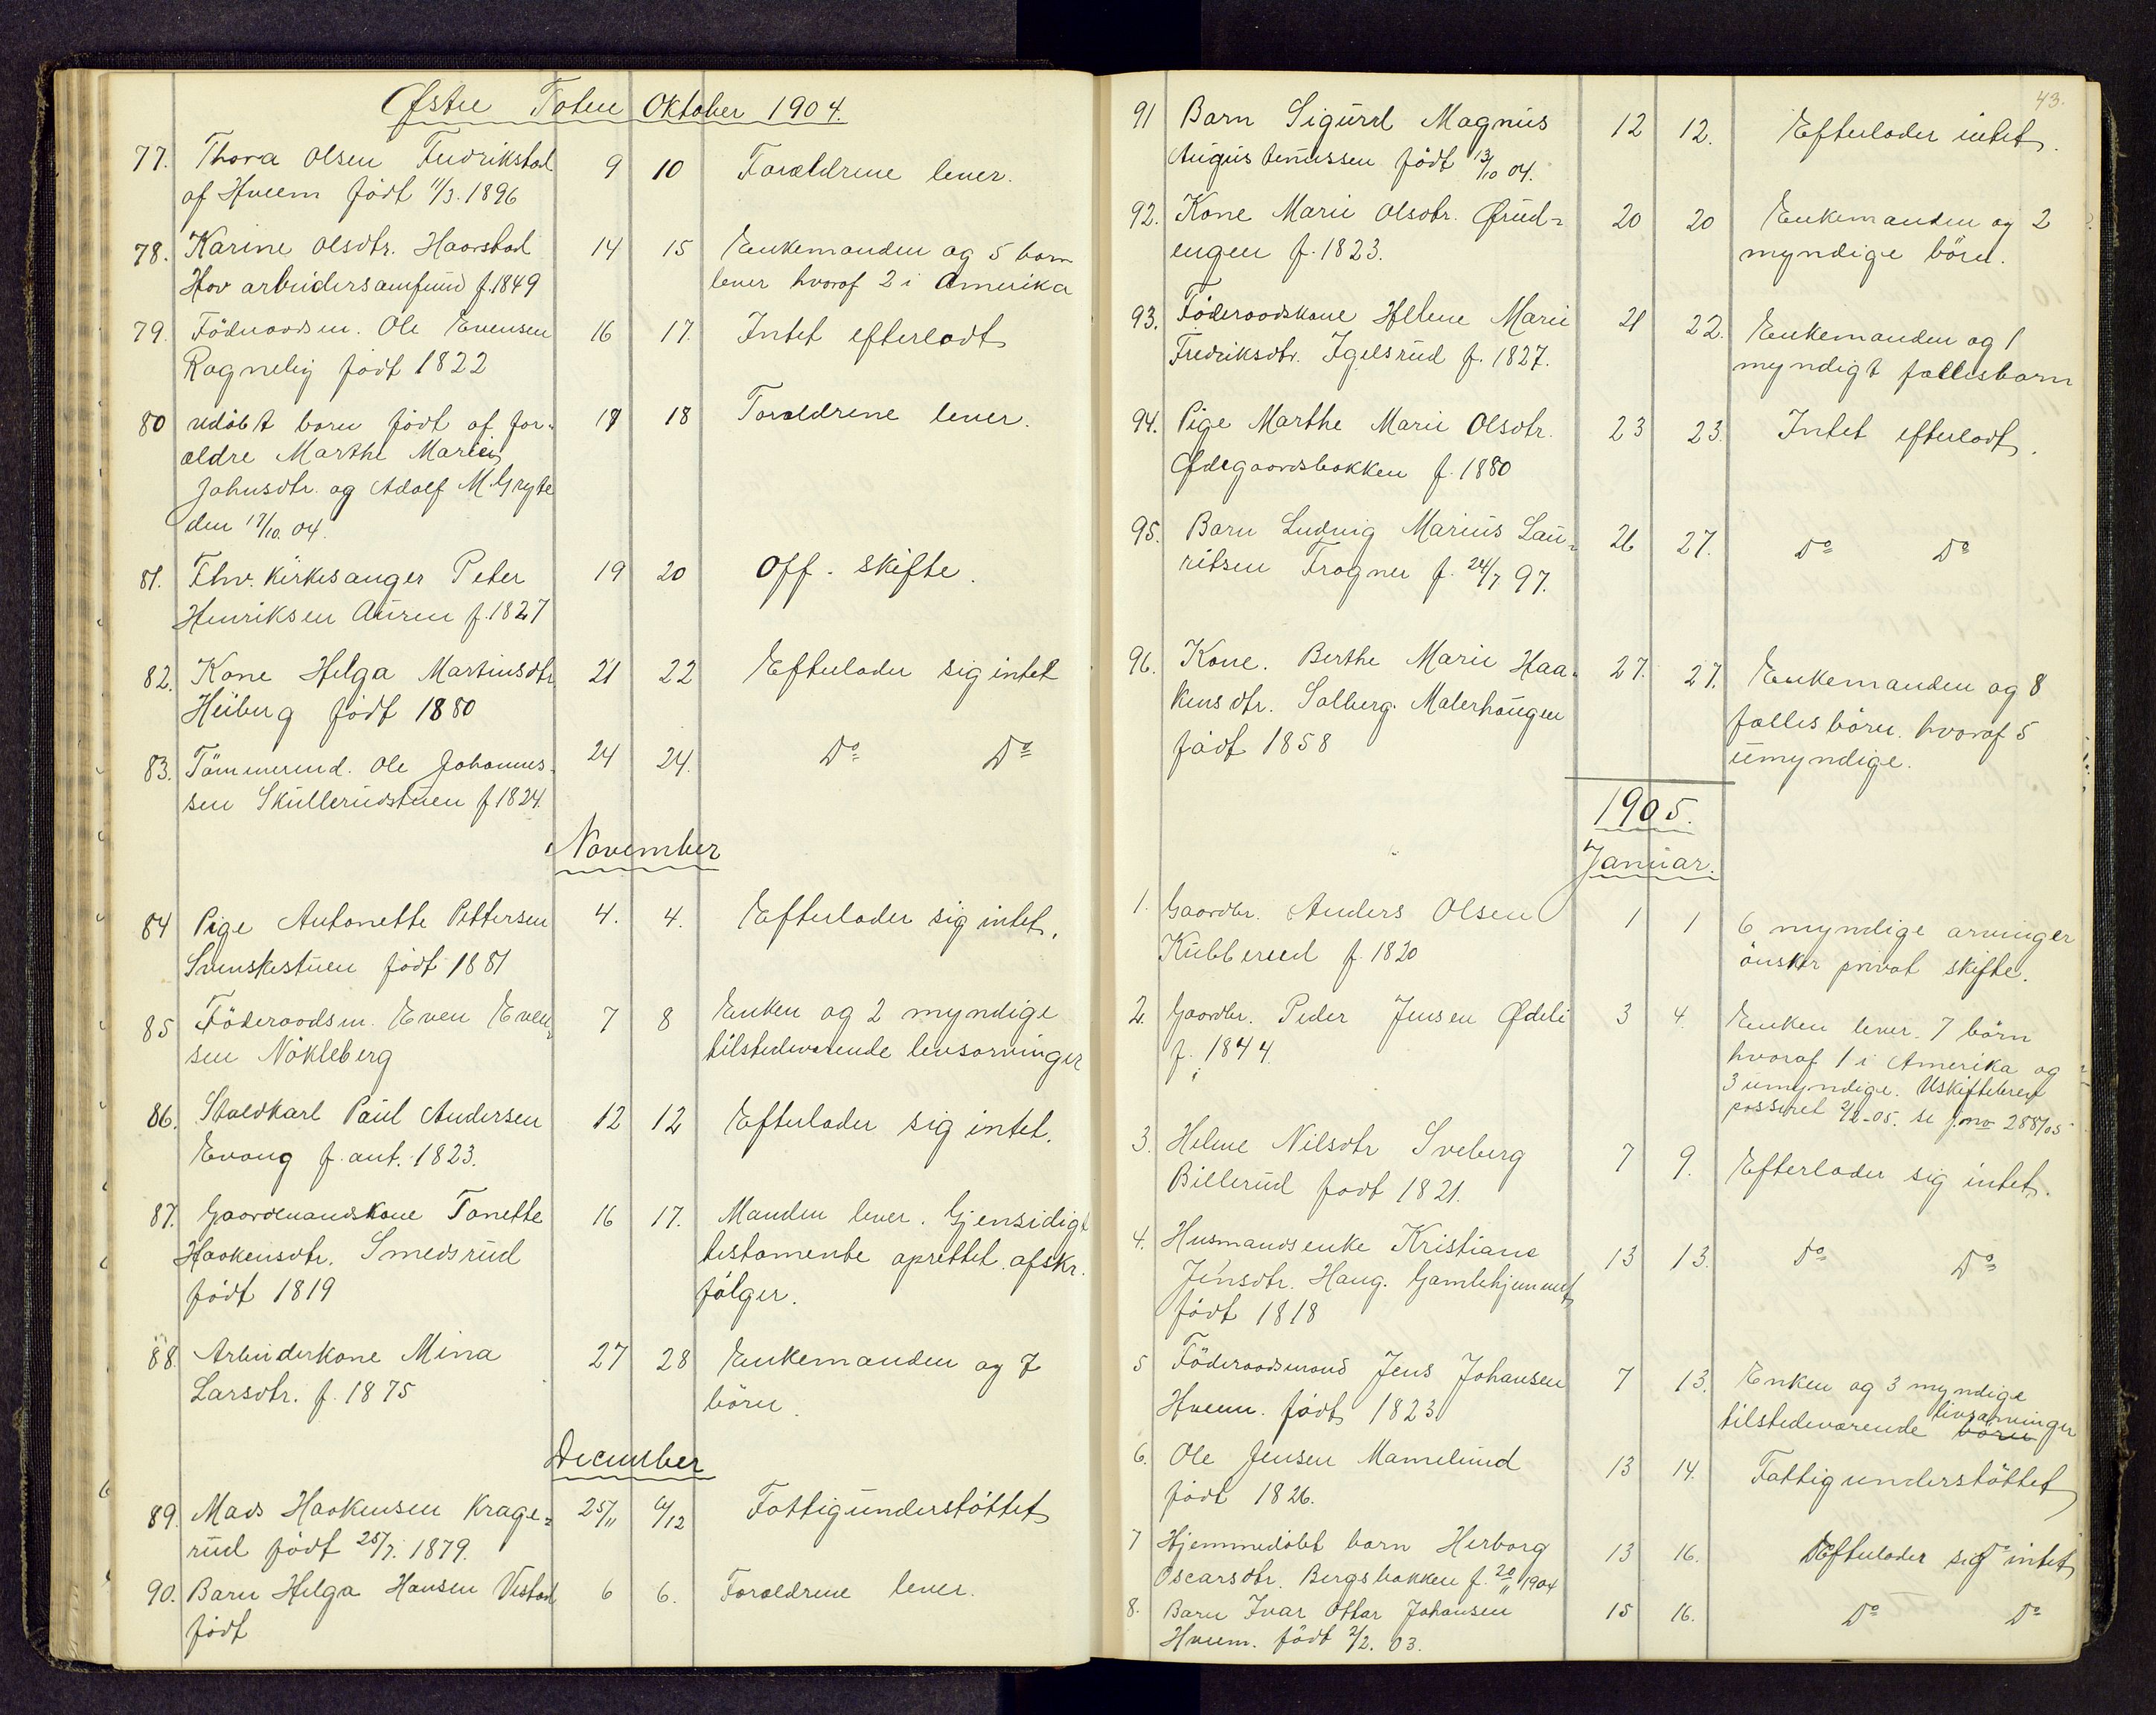 Østre Toten Oktober 1904.
77. Thora Olsen Fredrikstad 9 10 Forældrene lever.
af Hveem födt 11/3. 1896
78. Karine Olsdtr. Haarstad 14 15 Enkemanden og 5 barn
Hov arbeidersamfund f. 1849 lever hvoraf 2 i Amerika
79. Föderaadsm. Ole Evensen 16 17. Intet efterladt
Ragnelig födt 1822
80 udöbt barn födt af for- 17 18 Forældrene lever.
ældre Marthe Marie
Johnsdtr. og Adolf M. Gryte
den 17/10. 04.
81. Fhv. Kirkesanger Peter 19 20 Off. skifte.
Henriksen Auren f. 1827
82. Kone Helga Martinsdtr 21 22 Efterlader sig intet
Heiberg födt 1880
83. Tömmermd. Ole Johannes- 24 24. Do Do
sen Skullerudstuen f 1824.
November
84 Pige Antonette Pettersen 4. 4. Efterlader sig intet.
Svenskestuen födt 1881
85 Föderaadsm. Even Even- 7 8 Enken og 2 myndige
sen Nökleberg tilstedeværende livsarvinger
86. Staldkarl Paul Andersen 12 12 Efterlader sig intet.
Evang f. ant. 1823.
87. Gaardmandskone Tonette 16 17. Manden lever. Gjensidigt
Haakensdtr. Smedsrud testamente oprettet. afskr.
födt 1819 fölger.
88. Arbeiderkone Mina 27 28 Enkemanden og 7
Larsdtr. f. 1875 börn.
December
89. Mads Haakensen Krage- 25/11 /12 Fattigunderstöttet
rud födt 25/7. 1879.
90. Barn Helga Hansen Vestad 6 6. Forældrene lever.
födt
43.
91 Barn Sigurd Magnus 12 12. Efterlader intet.
Augustinussen födt 13/10 04.
92. Kone Marie Olsdtr. Ørud- 20 20 Enkemanden og 2
engen f. 1823. myndige börn.
93. Föderaadskone Helene Marie 21 22. Enkemanden og 1
Fredriksdtr. Igelsrud f. 1827. myndigt fællesbarn
94. Pige Marthe Marie Olsdtr. 23 23. Intet efterladt.
Ødegaardsbakken f. 1880
95. Barn Ludvig Marius Lau- 26 27. Do Do
ritsen Frogner f. 24/7 97.
96. Kone. Berthe Marie Haa- 27. 27. Enkemanden og 8
kensdtr. Solberg. Malerhaugen fælles börn. hvoraf 5
födt 1858 umyndige.
1905.
Januar.
1. Gaardbr. Anders Olsen 1 1 6 myndige arvinger
Kubberud f. 1820 önsker privat skifte.
2. Gaardbr. Peder Jensen Ødeli 3 4. Enken lever. 7 börn
f. 1844. hvoraf 1 i Amerika og
3 umyndige. Uskiftebevil
passeret 2/2-05. se j.no 288/05
3. Helene Nilsdtr Sveberg 7 9. Efterlader sig intet.
Billerud födt 1821.
4. Husmandsenke Kristiane 13 13. Do Do
Jensdtr. Haug. Gamlehjemmet
födt 1818
5 Föderaadsmand Jens Johansen 7 13. Enken og 3 myndige
Hveem. födt 1823 tilstedeværende börn livsarvinger
6. Ole Jensen Mamelund 13 14. Fattigunderstöttet
födt 1826.
7 Hjemmedöbt barn Herborg 13 16. Efterlader sig intet
Oscarsdtr. Bergsbakken f. 20/11 1904
8. Barn Ivar Ottar Johansen 15 16. Do Do
Hveem. födt 2/2. 03.